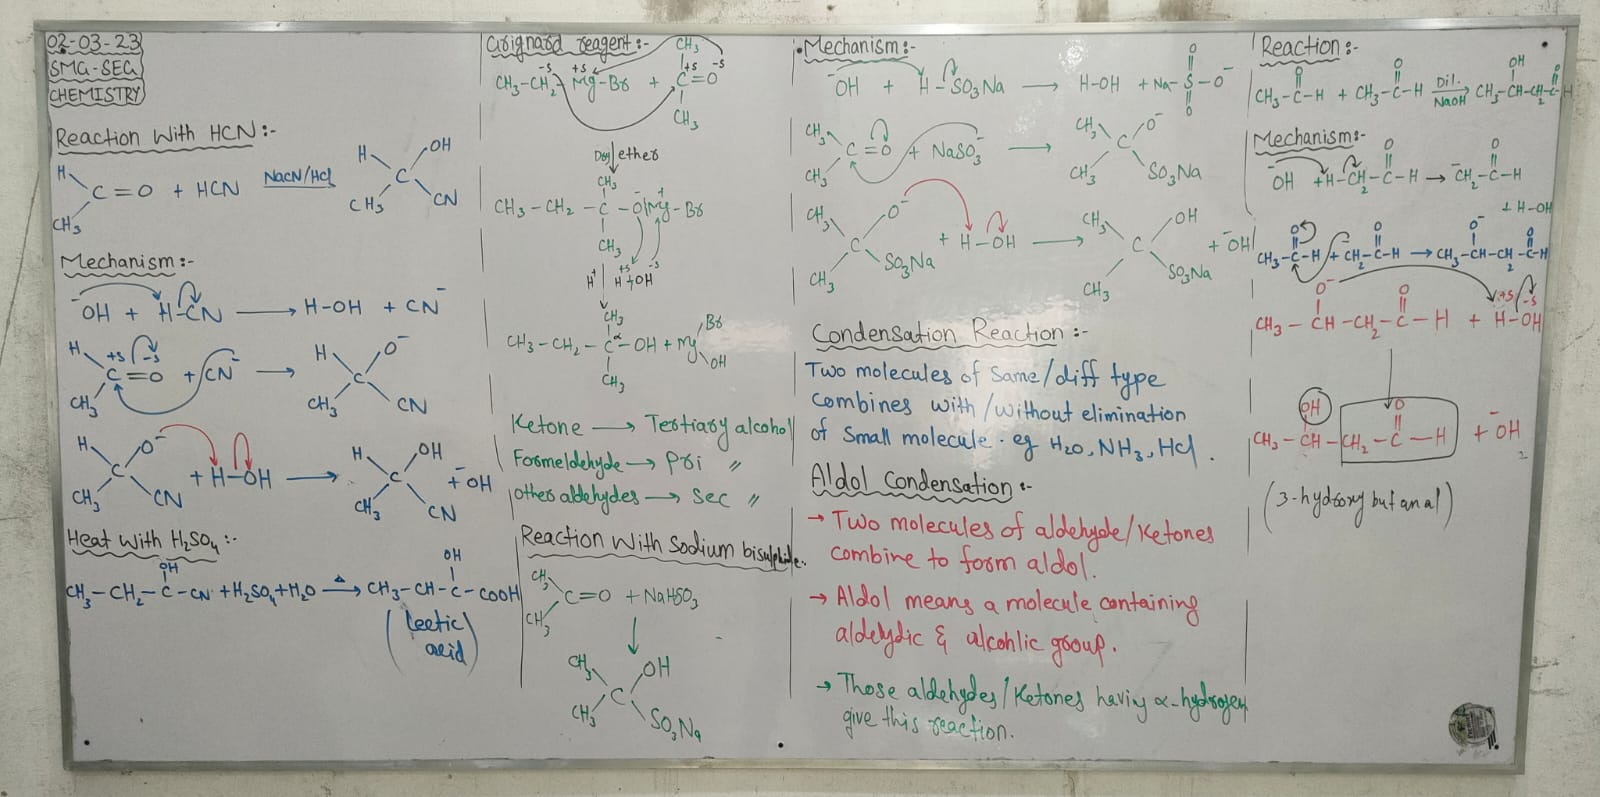 02-03-23
SMG-SEG
CHEMISTRY
Reaction With HCN:-
H
CH₃
C=O + HCN
NaCN/HCl
H
OH
C
CH₃
CN
Mechanism:-
⁻OH + H-CN → H-OH + CN⁻
H
+δ -δ
C=O + CN⁻ →
CH₃
H
O⁻
C
CH₃
CN
H
O⁻
C
CH₃
CN
+ H-OH →
H
OH
C
CH₃
CN
+ ⁻OH
Heat With H₂SO₄:-
OH
CH₃-CH₂-C-CN + H₂SO₄ + H₂O
Δ
→
OH
CH₃-CH-C-COOH
(Leetic
acid)
Grignard reagent:-
-δ +δ
CH₃-CH₂-Mg-Br +
CH₃
+δ -δ
C=O
CH₃
Dry ether
CH₃
- +
CH₃-CH₂-C-O Mg-Br
CH₃
H⁺
+δ -δ
H+OH
CH₃
CH₃-CH₂-C-OH + Mg
α
CH₃
Br
OH
Ketone → Tertiary alcohol
Formeldehyde → Pri 〃
other aldehydes → Sec 〃
Reaction With Sodium bisulphide.
CH₃
C=O + NaHSO₃
CH₃
↓
CH₃
OH
C
CH₃
SO₃Na
Mechanism:-
⁻OH + H-SO₃Na → H-OH + Na-S-O⁻
O
O
CH₃
C=O + NaSO₃⁻ →
CH₃
CH₃
O⁻
C
CH₃
SO₃Na
CH₃
O⁻
C
CH₃
SO₃Na
+ H-OH →
CH₃
OH
C
CH₃
SO₃Na
+ ⁻OH
Condensation Reaction:-
Two molecules of same/diff type
combines with/without elimination
of small molecule. eg H₂O, NH₃, HCl.
Aldol Condensation:-
→ Two molecules of aldehyde/Ketones
combine to form aldol.
→ Aldol means a molecule containing
aldelydic & alcohlic group.
→ Those aldehydes/Ketones haviy α-hydrogen
give this reaction.
Reaction:-
O O OH O
CH₃-C-H + CH₃-C-H
Dil.
NaOH
→ CH₃-CH-CH₂-C-H
Mechanism:-
O O
⁻OH + H-CH₂-C-H → ⁻CH₂-C-H
+ H-OH
O O O⁻ O
CH₃-C-H + ⁻CH₂-C-H → CH₃-CH-CH₂-C-H
O⁻ O +δ -δ
CH₃-CH-CH₂-C-H + H-OH
↓
OH O
CH₃-CH-CH₂-C-H + ⁻OH
(3-hydroxy butanal)